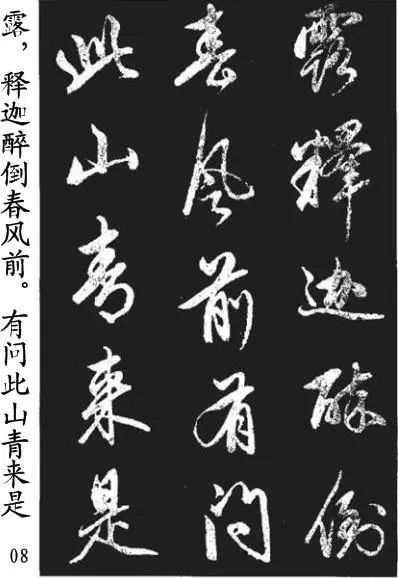 露釋迦醉倒
春風前有問
此山青来是
露，释迦醉倒春风前。有问此山青来是
08